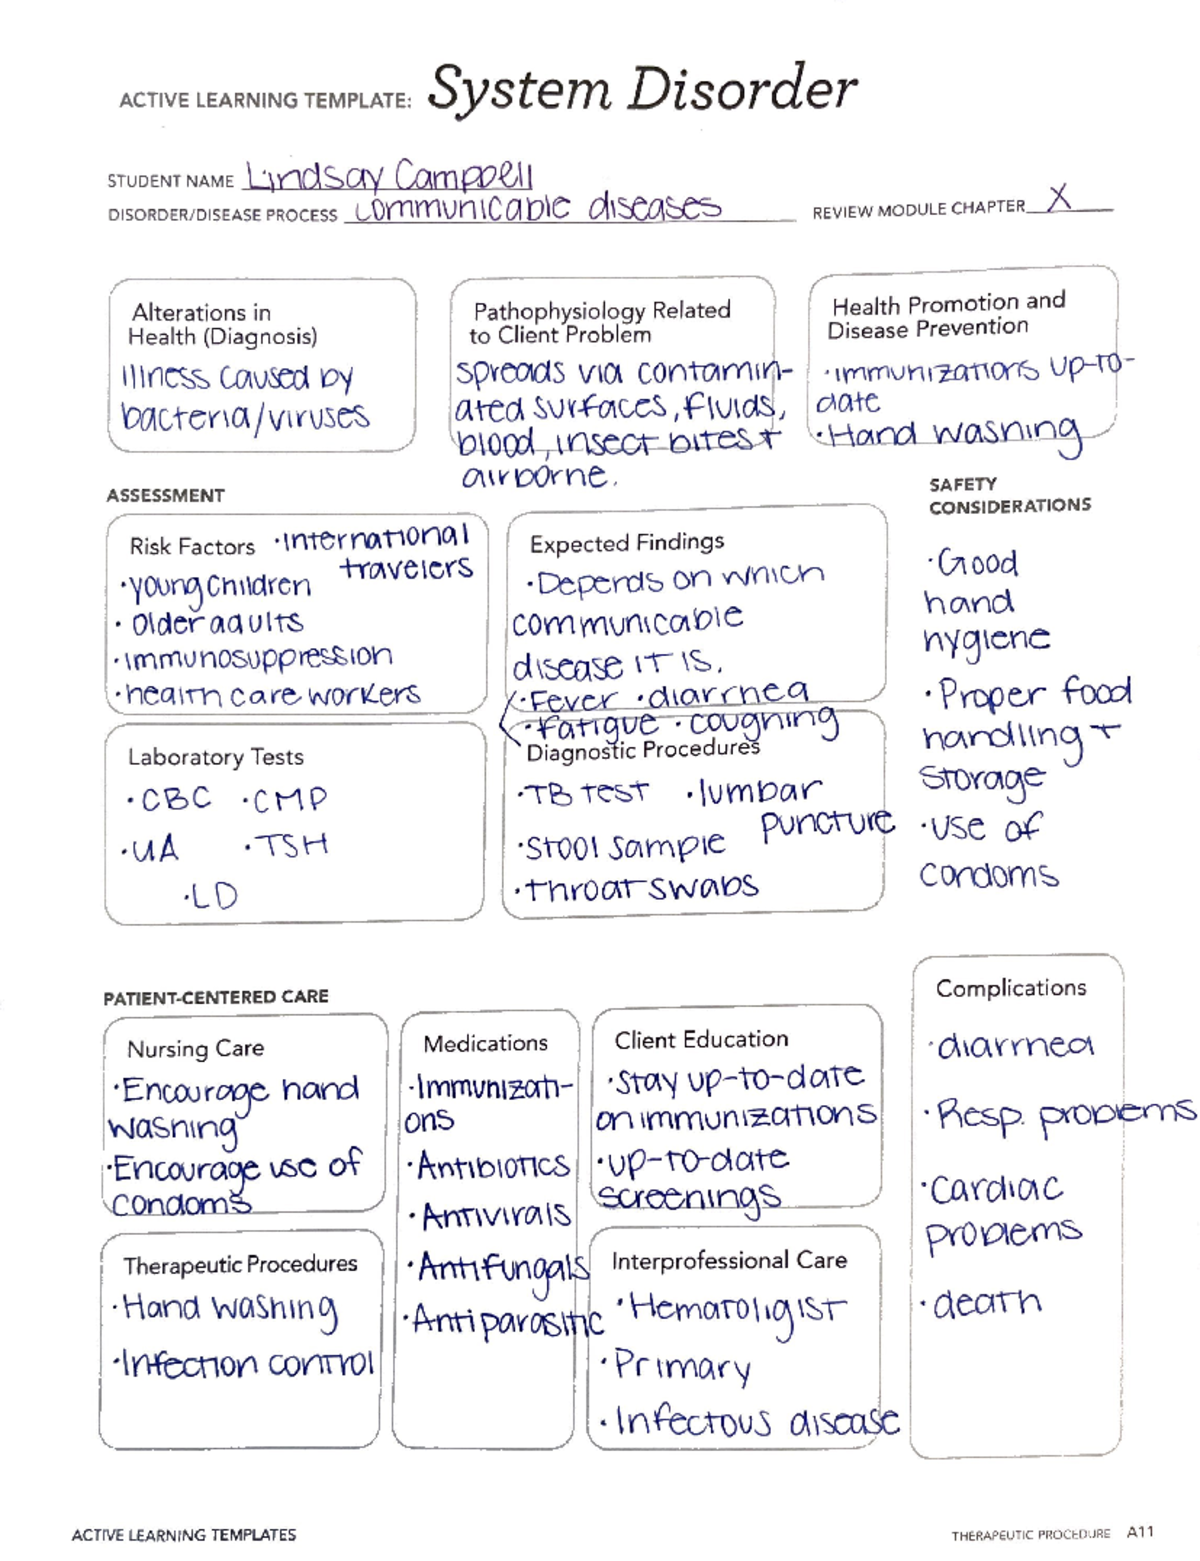 ACTIVE LEARNING TEMPLATE: System Disorder
STUDENT NAME Lindsay Campbell
DISORDER/DISEASE PROCESS communicable diseases REVIEW MODULE CHAPTER X
Alterations in
Health (Diagnosis)
Illness caused by
bacteria/viruses
Pathophysiology Related
to Client Problem
spreads via contamin-
ated surfaces, fluids,
blood, insect bites +
airborne.
Health Promotion and
Disease Prevention
·immunizations up-to-
date
·Hand washing
ASSESSMENT
Risk Factors ·International
travelers
·young children
·older adults
·immunosuppression
·health care workers
Expected Findings
·Depends on which
communicable
disease it is.
·Fever ·diarrhea
·fatigue ·coughing
SAFETY
CONSIDERATIONS
·Good
hand
hygiene
·Proper food
handling +
storage
·use of
condoms
Laboratory Tests
·CBC ·CMP
·UA ·TSH
·LD
Diagnostic Procedures
·TB test ·lumbar
puncture
·stool sample
·throat swabs
PATIENT-CENTERED CARE
Nursing Care
·Encourage hand
washing
·Encourage use of
condoms
Medications
·Immunizati-
ons
·Antibiotics
·Antivirals
·Antifungals
·Antiparasitic
Client Education
·Stay up-to-date
on immunizations
·up-to-date
screenings
Complications
·diarrhea
·Resp. problems
·cardiac
problems
·death
Therapeutic Procedures
·Hand washing
·Infection control
Interprofessional Care
·Hematoligist
·Primary
·Infectous disease
ACTIVE LEARNING TEMPLATES
THERAPEUTIC PROCEDURE A11